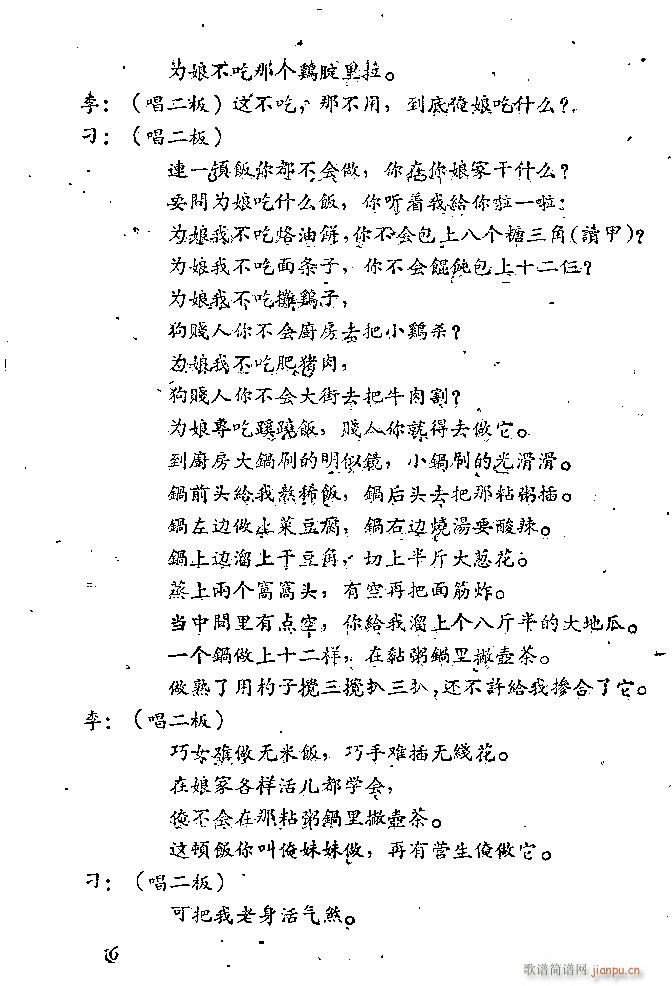 为娘不吃那个鷄脘里拉。
李：（唱二板）这不吃，那不用，到底俺娘吃什么？
刁：（唱二板）
連一頓飯你都不会做，你在你娘家干什么？
要問为娘吃什么飯，你听着我給你啦一啦：
为娘我不吃烙油餅，你不会包上八个糖三角（請甲）？
为娘我不吃面条子，你不会餛飩包上十二仨？
为娘我不吃攤鷄子，
狗賤人你不会廚房去把小鷄杀？
为娘我不吃肥猪肉，
狗賤人你不会大街去把牛肉割？
为娘専吃蹊蹺飯，賤人你就得去做它。
到廚房大鍋刷的明似鏡，小鍋刷的光滑滑。
鍋前头給我熬稀飯，鍋后头去把那粘粥插。
鍋左边做上菜豆腐，鍋右边燒湯要酸辣。
鍋上边溜上干豆角，切上半斤大葱花。
蒸上兩个窩窩头，有空再把面筋炸。
当中間里有点空，你給我溜上个八斤半的大地瓜。
一个鍋做上十二样，在黏粥鍋里撇壺茶。
做熟了用杓子攪三攪扒三扒，还不許給我摻合了它。
李：（唱二板）
巧女难做无米飯，巧手难插无綫花。
在娘家各样活儿都学会，
俺不会在那粘粥鍋里撇壺茶。
这頓飯你叫俺妹妹做，再有营生俺做它。
刁：（唱二板）
可把我老身活气煞。
歌谱简谱网 jianpu.cn